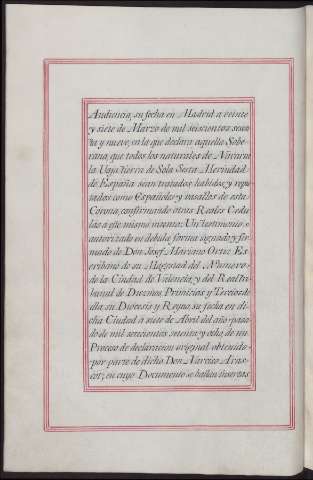 Audiencia, su fecha en Madrid a veinte
y siete de Marzo de mil seiscientos sesen
ta y nueve, en la que declara aquella Sobe-
rana, que todos los naturales de Navarra
la Uaja tierra de Sola Sexta Merindad
de España sean tratados, habidos, y repu
tados como Españoles y vasallos de esta
Corona, confirmando otras Reales Cedu
las a este mismo intento: Un testimonio
autorizado en debida forma signado y fir
mado de Don Josef Mariano Ortiz Es
cribano de su Magestad del Numero
de la Ciudad de Valencia, y del Real Tri
bunal de Diezmos, Primicias, y Tercios de
ella su Diocesis y Reyno su fecha en di
cha Ciudad à siete de Abril del año pasa
do de mil setecientos setenta y ocho de un
Proceso de declaracion original obtenido
por parte de dicho Don Narciso Aras
cot; en cuyo Documento se hallan insertas